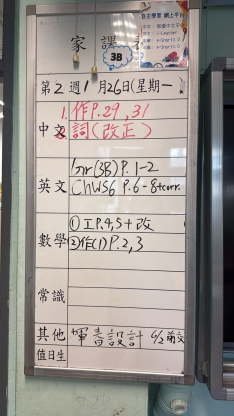 家課表
3B
第2週1月26日(星期一)
中文
1.作P.29,31
2.詞(改正)
英文
Gr(3B)P.1-2
ChWS6 P.6-8+corr.
數學
①工P.4,5+改
②作(1)P.2,3
常識
其他
6/2前交
值日生